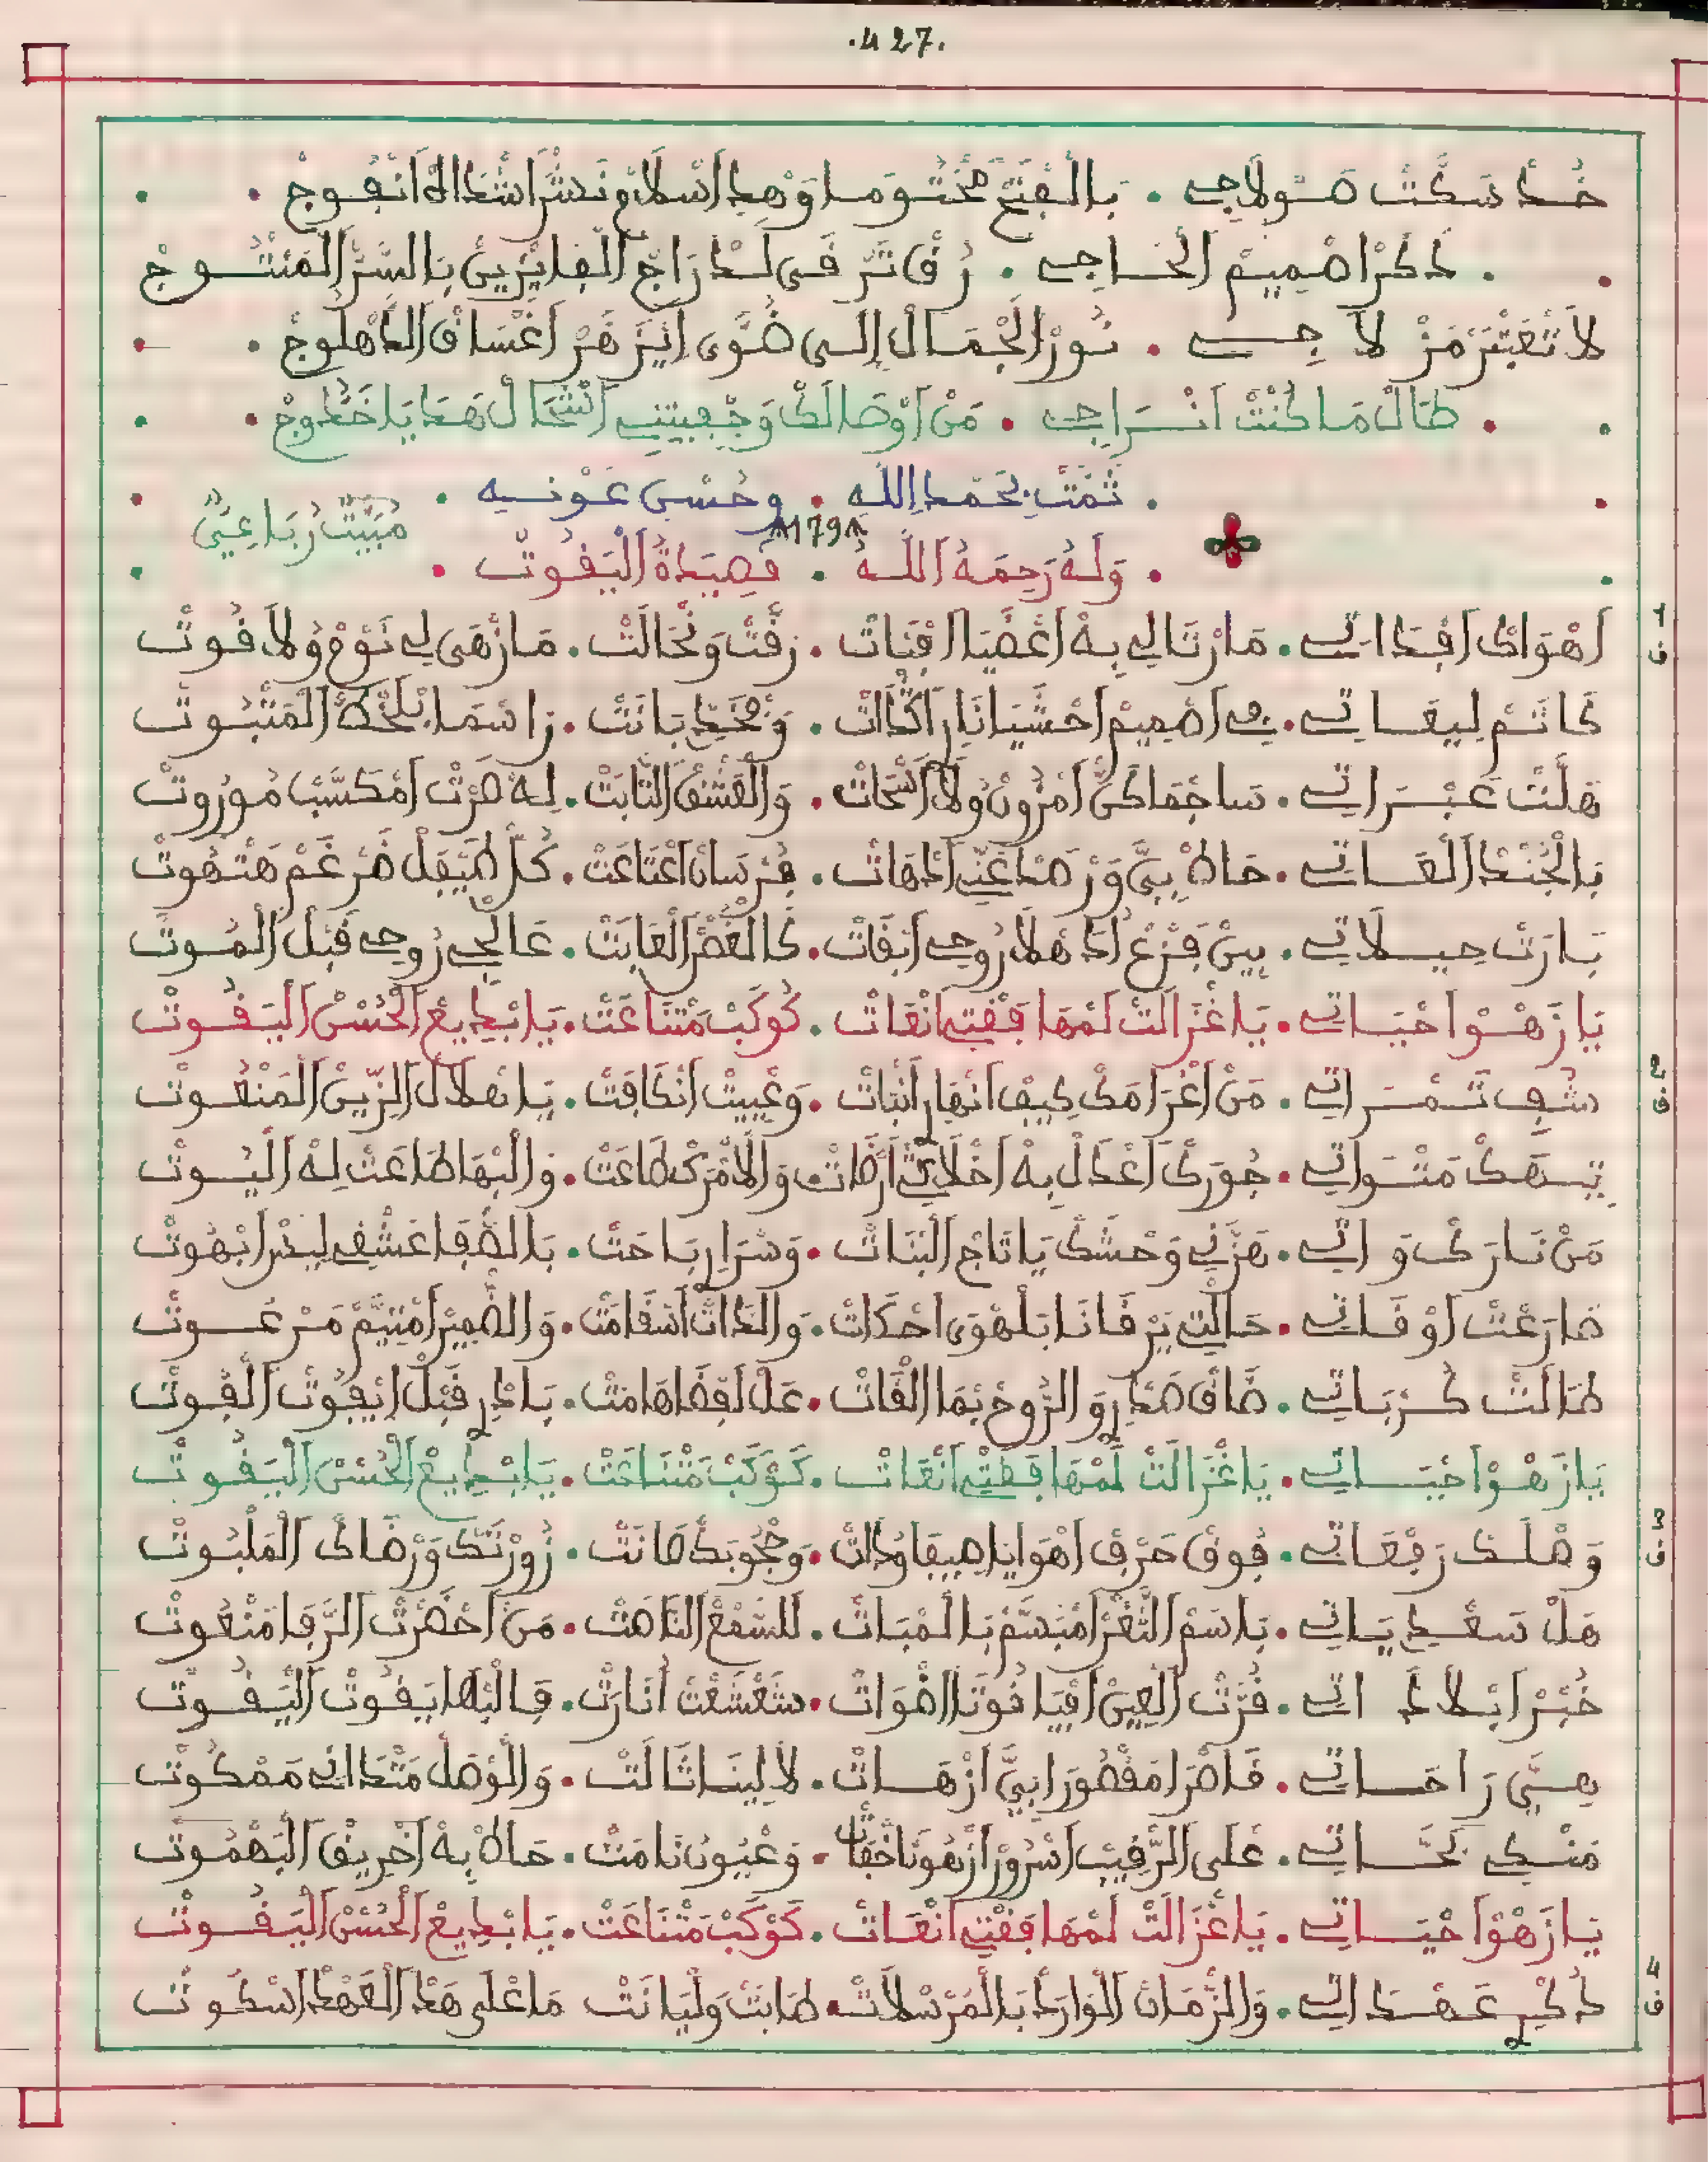 .427.
خُذْ سَكَّتْ صَوْلَاجِي . بَالْفِتَحْ مَخْتُومَا وَهْدِ اسْلَامْ نَشْرْ اشْدَالَهْ انْفُوجْ
دَكْرْ اصْمِيمْ الْحَاجِي . رُقْ تَرْقَى لَدْرَاجْ الْفَايْزِينْ بَالسَّرْ الْمَنْتُوجْ
لاَ تْعَبَّرْ مَنْ لاَ جِي . نُورْ الْجْمَالْ إِلَى ضْوَى ايْزَهَّرْ اغْسَاقْ الدَّهْلُوجْ
طَالْ مَا كُنْتْ انْرَاجِي . مَنْ اوْصَالَكْ وَجْعِيتِينِي اشْحَالْ هَدَا يَا خَدُّوجْ
تَمَّتْ بِحَمْدِ اللَّهِ . وحُسْنِ عَوْنِهِ
مُبَيَّتْ رُبَاعِيّ
179
وَلَهُ رَحِمَهُ اللَّهُ . قَصِيدَةُ الْيَقُوتْ
1 ف
اهْوَاكْ افْدَاتِي . مَا رْتَالِي بِهْ اعْضَيَا افْنَاتْ . رَقَّتْ وَنْحَالَتْ . مَا زْهَى لِي نَوْمْ وُلاَ قُوتْ
كَاتَمْ لِيعَاتِي . فِي اصْمِيمْ احْشَيَا نَارْ اكْدَاتْ . وَمْخَدِّ بَانَتْ . رَاسْمَا بْلَحْكَهْ الْمَتْبُوتْ
هَلَّتْ عَبْرَاتِي . سَاجْمَا كَنّْ امْزُونْ وُلاَ اشْحَاتْ . وَالْعَشْقْ التَّابَتْ . لِهْ صَرْتْ امْكَسَّبْ مُورُوتْ
بِالْجُنْدْ الْعَاتِي . حَاطْ بِيَّ وَرْصَدْ عَنِّي ادْهَاتْ . فُرْسَانْ اعْتَاعَتْ . كُلّْ ضَيْقَلْ ضَرْغَمْ هَتْهُوتْ
بَارَتْ حِيلاَتِي . بِينْ فَزْعْ ادْهَلاَ رُوحِي ابْقَاتْ . كَالْغْصْنْ الْعَابَتْ . عَالْجِي رُوحِي قَبْلْ الْمُوتْ
يَا زَهْوْ احْيَاتِي . يَا غْزَالَتْ لَمْهَا فَقْتِي انْعَاتْ . كُوكَبْ مَتْنَاعَتْ . يَا بْدِيعْ الْحُسْنْ الْيَقُوتْ
2 ف
شُفِ تَمْرَاتِي . مَنْ اغْرَامَكْ كِيفْ انْهَارْ ابْنَاتْ . وَغْبِيتْ انْكَافَتْ . يَا هْلاَلْ الزِّينْ الْمَنْعُوتْ
تِيهَكْ مَتْوَاتِي . جُورَكْ اعْدَلْ بِهْ اخْلاَيَتْ ارْضَاتْ وَالاَمْرَكْ طَاعَتْ . وَالْبْهَا طَاعَتْ لِهْ الْيُوتْ
مَنْ نَارَكْ وَاتِي . هَزْنِي وَحْشَكْ يَا تَاجْ الْبَنَاتْ . وَسْرَارِ بَاحَتْ . بَالصَّفَا عَشْقِي لِيسْ ابْهُوتْ
ضَارَعْتْ اوْقَاتِي . حَالْتِي يَرْقَانَا بَلْهْوَى احْكَاتْ . وَالذَّاتْ اسْقَامَتْ . وَالضَّمِيرْ امْتَيَّمْ مَرْعُوتْ
طَالَتْ كُرْبَاتِي . ضَاقْ صَدْرِ وَالرُّوحْ بَمَا الْقَاتْ . عَلْ لَقْضَا هَامَتْ . بَادْرِ قَبْلْ ايْفُوتْ الْفُوتْ
يَا زَهْوْ احْيَاتِي . يَا غْزَالَتْ لَمْهَا فَقْتِي انْعَاتْ . كَوْكَبْ مَتْنَاعَتْ . يَا بْدِيعْ الْحُسْنْ الْيَقُوتْ
3 ف
وَصْلَكْ رَفْعَاتِي . فُوقْ حَرْفْ اهْوَايَا صِيفَا وُدَاتْ . وَحْجُوبَكْ صَانَتْ . زُورْتَكْ وَرْضَاكْ الْمَلْبُوتْ
هَلْ سَعْدِ يَاتِي . بَاسَمْ التَّغْرْ امْبَسَّمْ بَالْمْبَاتْ . لَلسَّمْعْ النَّاصَتْ . مَنْ احْضَرْتْ الرَّقِبَا مَنْعُوتْ
خُبْرْ ابْلاَدَاتِي . قُرَّتْ الْعِينْ افْيَاقُوتَا اضْوَاتْ . شَعْشَعْتْ انَارَتْ . فَالْبْهَا يَقُوتْ الْيَقُوتْ
هِيَّ رَاحَاتِي . قَاصْرَا مَقْصُورَا بِيَّ ازْهَاتْ . لاَ لِينَا تَالَتْ . وَالْوْصَلْ مَتْدَانِي مَمْكُوتْ
مَنْكِي نَحَّاتِي . عَلَى الرَّقِيبْ اسْرُورْ ازْهُونَا خْفَاتْ . وَعْيُونْ نَامَتْ . حَاطْ بِهْ احْرِيقْ الْبَهْمُوتْ
يَا زَهْوْ احْيَاتِي . يَا غْزَالَتْ لَمْهَا فَقْتِي انْعَاتْ . كَوْكَبْ مَتْنَاعَتْ . يَا بْدِيعْ الْحُسْنْ الْيَقُوتْ
4 ف
دُكْرِ عَهْدَاتِي . وَالزْمَانْ الْوَارَدْ بَالْمُرْسْلاَتْ . طَابَتْ وَلْيَانَتْ مَا عْلَى هَدْ الْعَهْدْ اسْكُوتْ